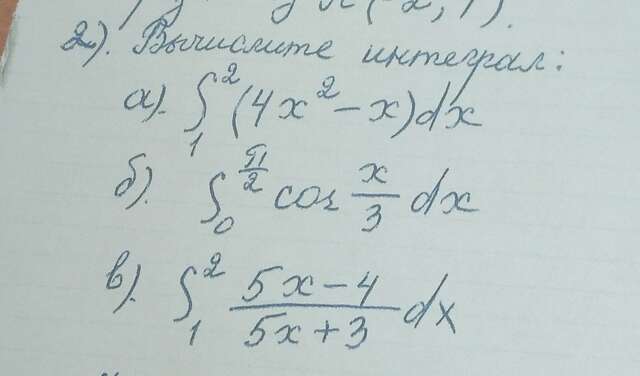 2). Вычислите интеграл:
а). ∫₁² (4x² – x)dx
б). ∫₀^(π/2) cos x/3 dx
в). ∫₁² (5x – 4)/(5x + 3) dx